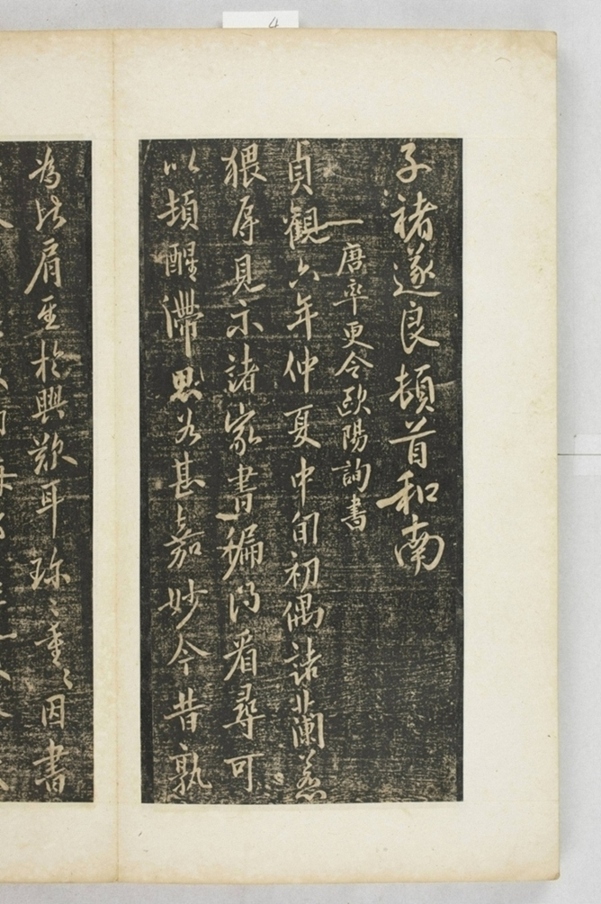 4
子褚遂良頓首和南
唐率更令歐陽詢書
貞觀六年仲夏中旬初偶詣蘭惹
猥辱見示諸家書徧得看尋可
以頓醒滯思尤甚嘉妙今昔孰
為比肩至於興歎耳珍〻重〻因書